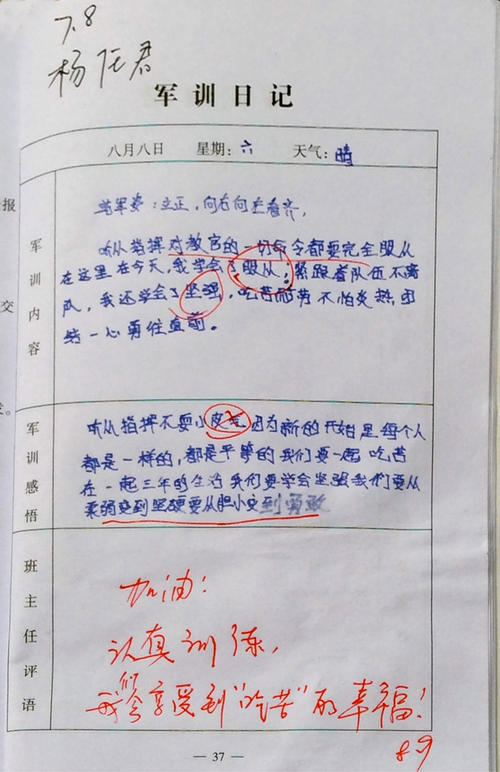 7.8
杨
军训日记
八月八日 星期:六 天气:晴
报
交
军训内容
站军姿:立正,向右向左看齐,
听从指挥对教官的一切命令都要完全服从
在这里在今天,我学会了服从;紧跟着队伍不离
队,我还学会了坚强,吃苦耐劳不怕炎热,团
结一心勇往直前。
军训感悟
听从指挥不耍小皮气因为新的开始里每个人
都是一样的,都是平等的我们要一起吃苦
在一起三年的生活我们要学会坚强我们要从
柔弱变到坚硬要从胆小变到勇敢
班主任评语
加油!
认真训练,
我们会享受到"吃苦"的幸福!
8.9
— 37 —